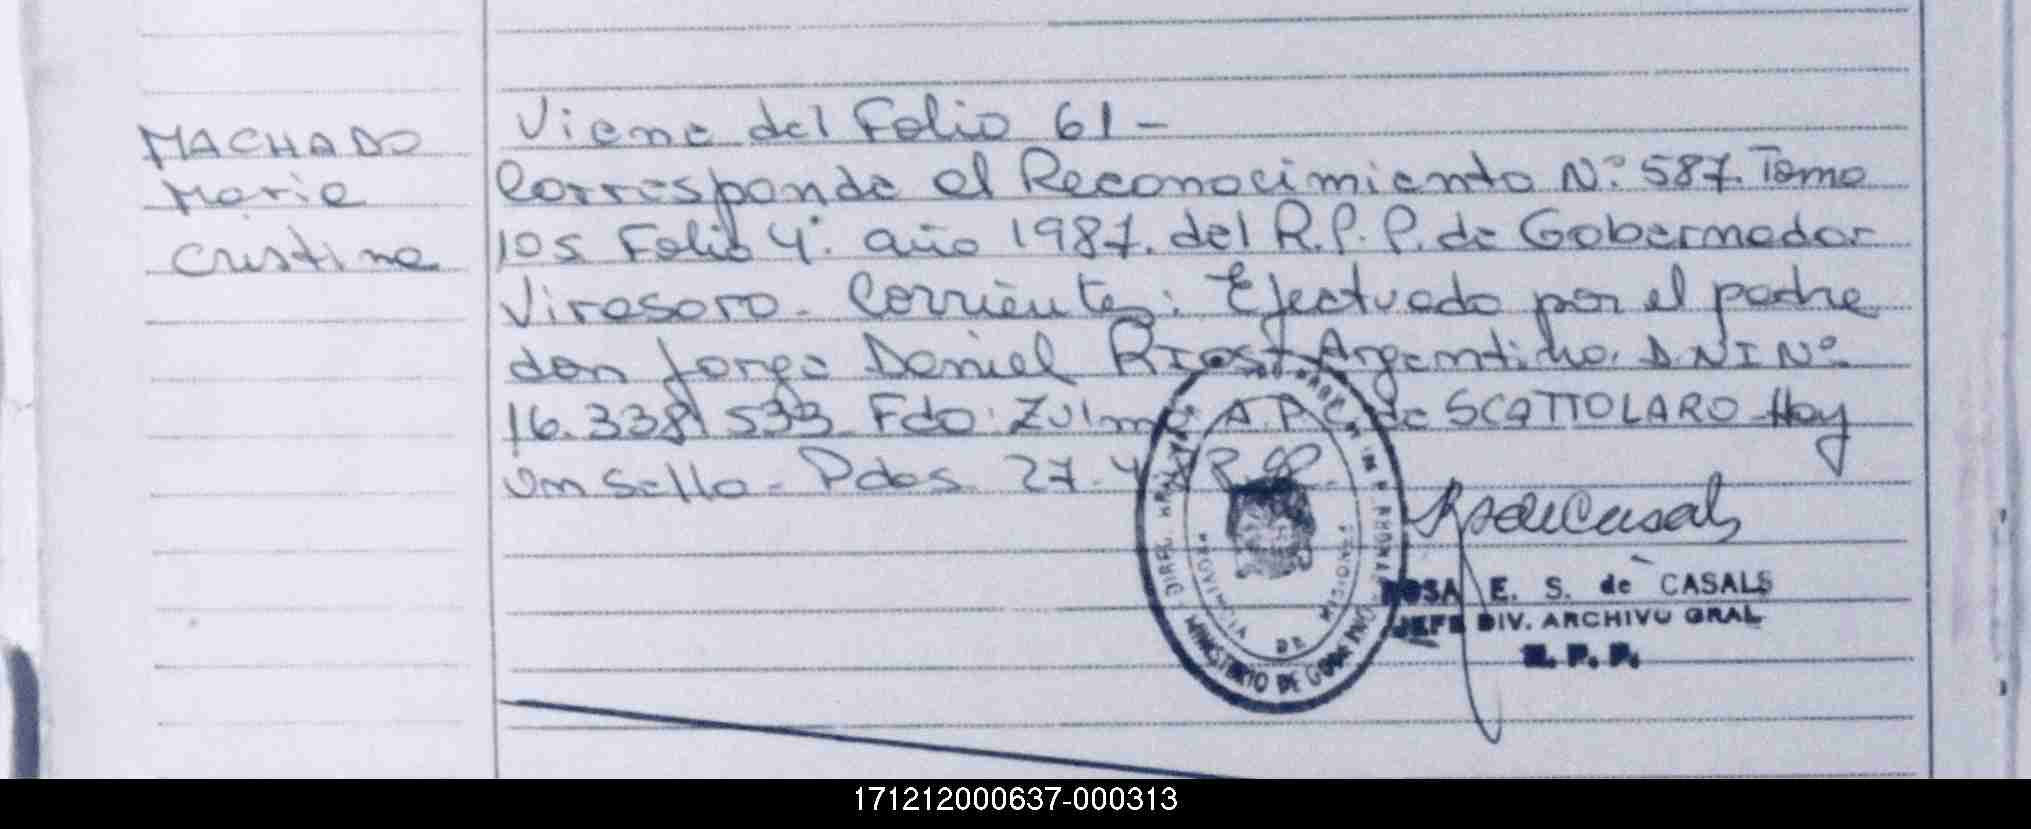 MACHADO
Maria
Cristina
Viene del Folio 61 -
Corresponde al Reconocimiento N° 587. Tomo
105 Folio 4°. año 1987. del R.P.P. de Gobernador
Virasoro - Corrientes: Efectuado por el padre
don Jorge Daniel Rios, Argentino. DNI N°
16.338 533 Fdo: Zulma A.P. de SCATTOLARO Hay
un sello - Pdas 27.4
PROVINCIA DE MISIONES
MINISTERIO DE GOBIERNO
ROSA E. S. de CASALS
JEFE DIV. ARCHIVO GRAL
R. P. P.
171212000637-000313